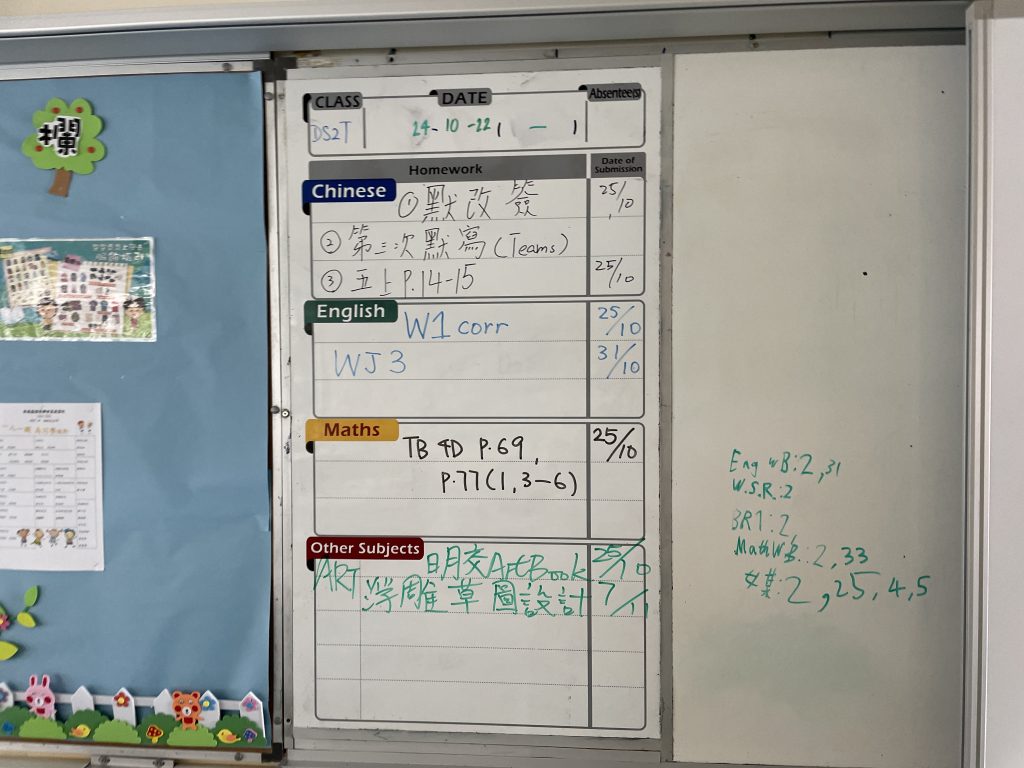 欄
CLASS DATE Absentee(s)
DS2T 24-10-22 ( — )
Homework Date of Submission
Chinese
① 默改簽 25/10
② 第三次默寫 (Teams)
③ 五上 P.14-15 25/10
English
W1 corr 25/10
WJ 3 31/10
Maths
TB 4D P.69, 25/10
P.77 (1, 3-6)
Other Subjects
ART 明交 Art Book 25/10
浮雕草圖設計 7/11
Eng WB: 2, 31
W.S.R: 2
BR1: 2,
Math WB: 2, 33
2, 25, 4, 5